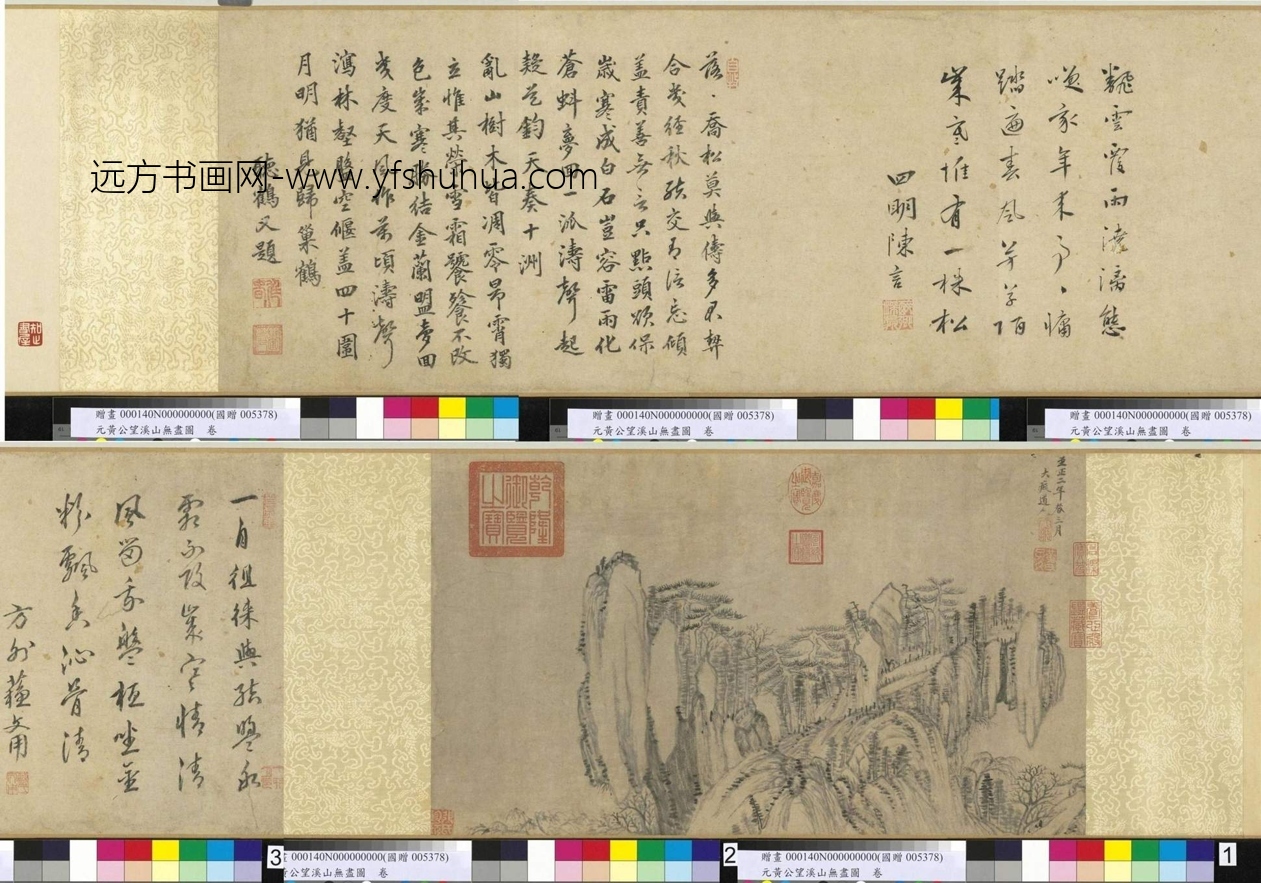 翻雲覆雨澆漓態
嘆我年来事〻慵
踏遍春風芳草陌
歲寒惟有一株松
四明陳言
落〻喬松莫與儔多君契
合幾經秋結交有語忘傾
蓋責善無言只點頭煩保
歲寒成白石豈容雷雨化
蒼虯夢回一派濤聲起
疑是鈞天奏十洲
亂山樹木皆凋零昂霄獨
立惟其榮雪霜饕餮不改
色歲寒締結金蘭盟夢回
幾度天風作萬頃濤聲
瀉林壑盤空偃蓋四十圍
月明猶見歸巢鶴
德鶴又題
远方书画网-www.yfshuhua.com
贈畫 000140N000000000(國贈 005378)
元黃公望溪山無盡圖 卷
贈畫 000140N000000000(國贈 005378)
元黃公望溪山無盡圖 卷
贈畫 000140N000000000(國贈 005378)
元黃公望溪山無盡圖 卷
至正二年春三月
大癡道人
乾隆御覽之寶
一自徂徠與結盟永
霜不改歲寒情清
風留我盤桓坐金
粉飄香沁骨清
方外
3
贈畫 000140N000000000(國贈 005378)
元黃公望溪山無盡圖 卷
2
贈畫 000140N000000000(國贈 005378)
元黃公望溪山無盡圖 卷
1